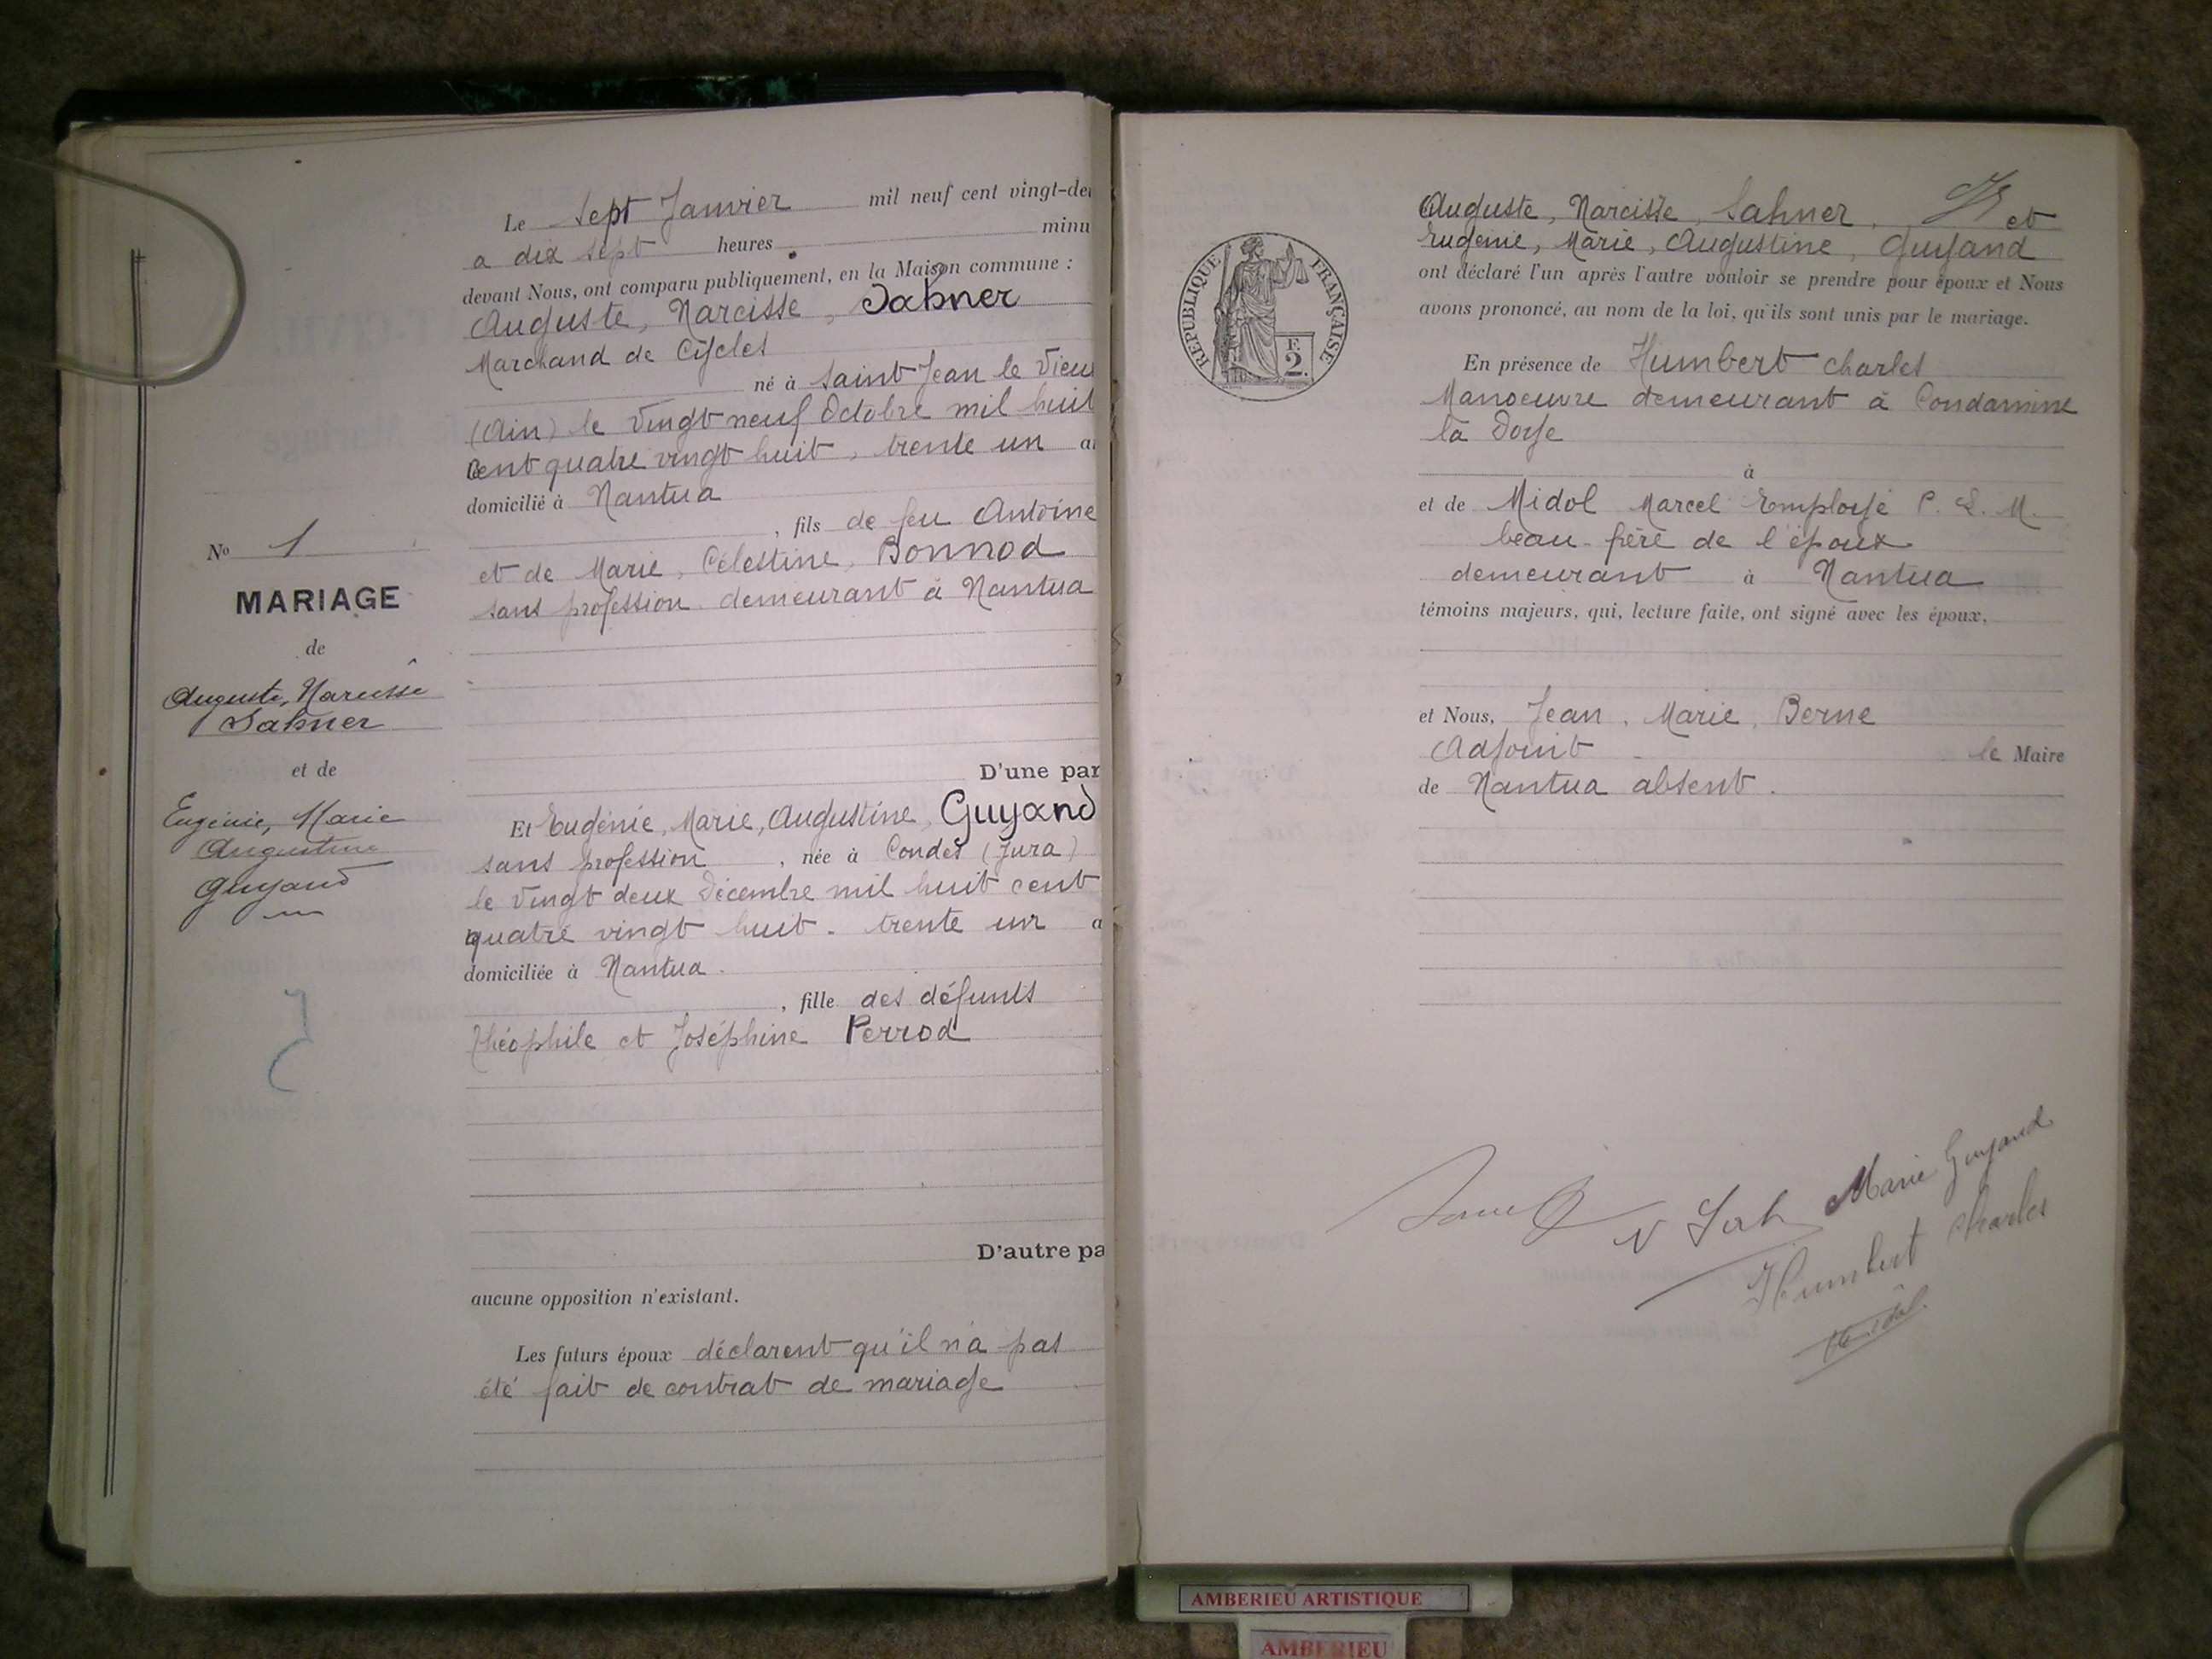 Le Sept Janvier mil neuf cent vingt-de
a dix sept heures minu
devant Nous, ont comparu publiquement, en la Maison commune :
Auguste, Narcisse, Sahner
Marchand de Cycles
né à Saint Jean le Vieu
(Ain) le vingt neuf Octobre mil huit
cent quatre vingt huit, trente un a
domicilié à Nantua
, fils de feu Antoine
et de Marie, Célestine, Bonnod
sans profession demeurant à Nantua
No 1
MARIAGE
de
Auguste, Narcisse
Sahner
et de
Eugénie, Marie
Augustine
Guyand
D'une par
Et Eugénie, Marie, Augustine, Guyand
sans profession , née à Condes (Jura)
le vingt deux Décembre mil huit cent
quatre vingt huit - trente un a
domiciliée à Nantua
, fille des défunts
Théophile et Joséphine Perrod
D'autre pa
aucune opposition n'existant.
Les futurs époux déclarent qu'il n'a pas
été fait de contrat de mariage
RÉPUBLIQUE FRANÇAISE
F.
2.
Auguste, Narcisse, Sahner, et
Eugénie, Marie, Augustine, Guyand
ont déclaré l'un après l'autre vouloir se prendre pour époux et Nous
avons prononcé, au nom de la loi, qu'ils sont unis par le mariage.
En présence de Humbert Charles
Manoeuvre demeurant à Condamine
la Doye
à
et de Midol Marcel Employé P. L. M.
beau-frère de l'époux
demeurant à Nantua
témoins majeurs, qui, lecture faite, ont signé avec les époux,
et Nous, Jean, Marie, Berne
Adjoint - le Maire
de Nantua absent.
Marie Guyand
Humbert Charles
Midol
AMBERIEU ARTISTIQUE
AMBERIEU